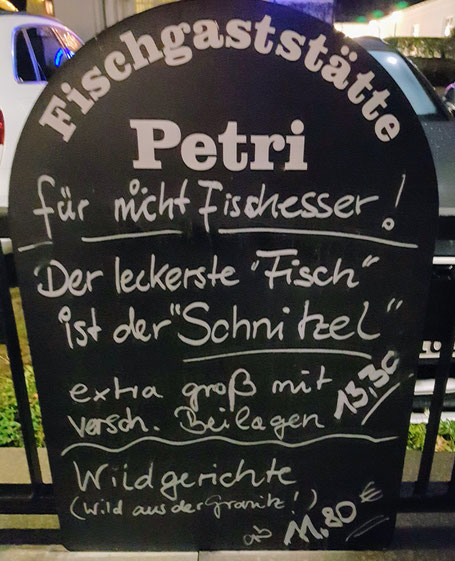 Fischgaststätte
Petri
für nicht Fischesser!
Der leckerste "Fisch"
ist der "Schnitzel"
extra groß mit
versch. Beilagen 13,30
Wildgerichte
(Wild aus der Granitz!)
ab 11.80 €